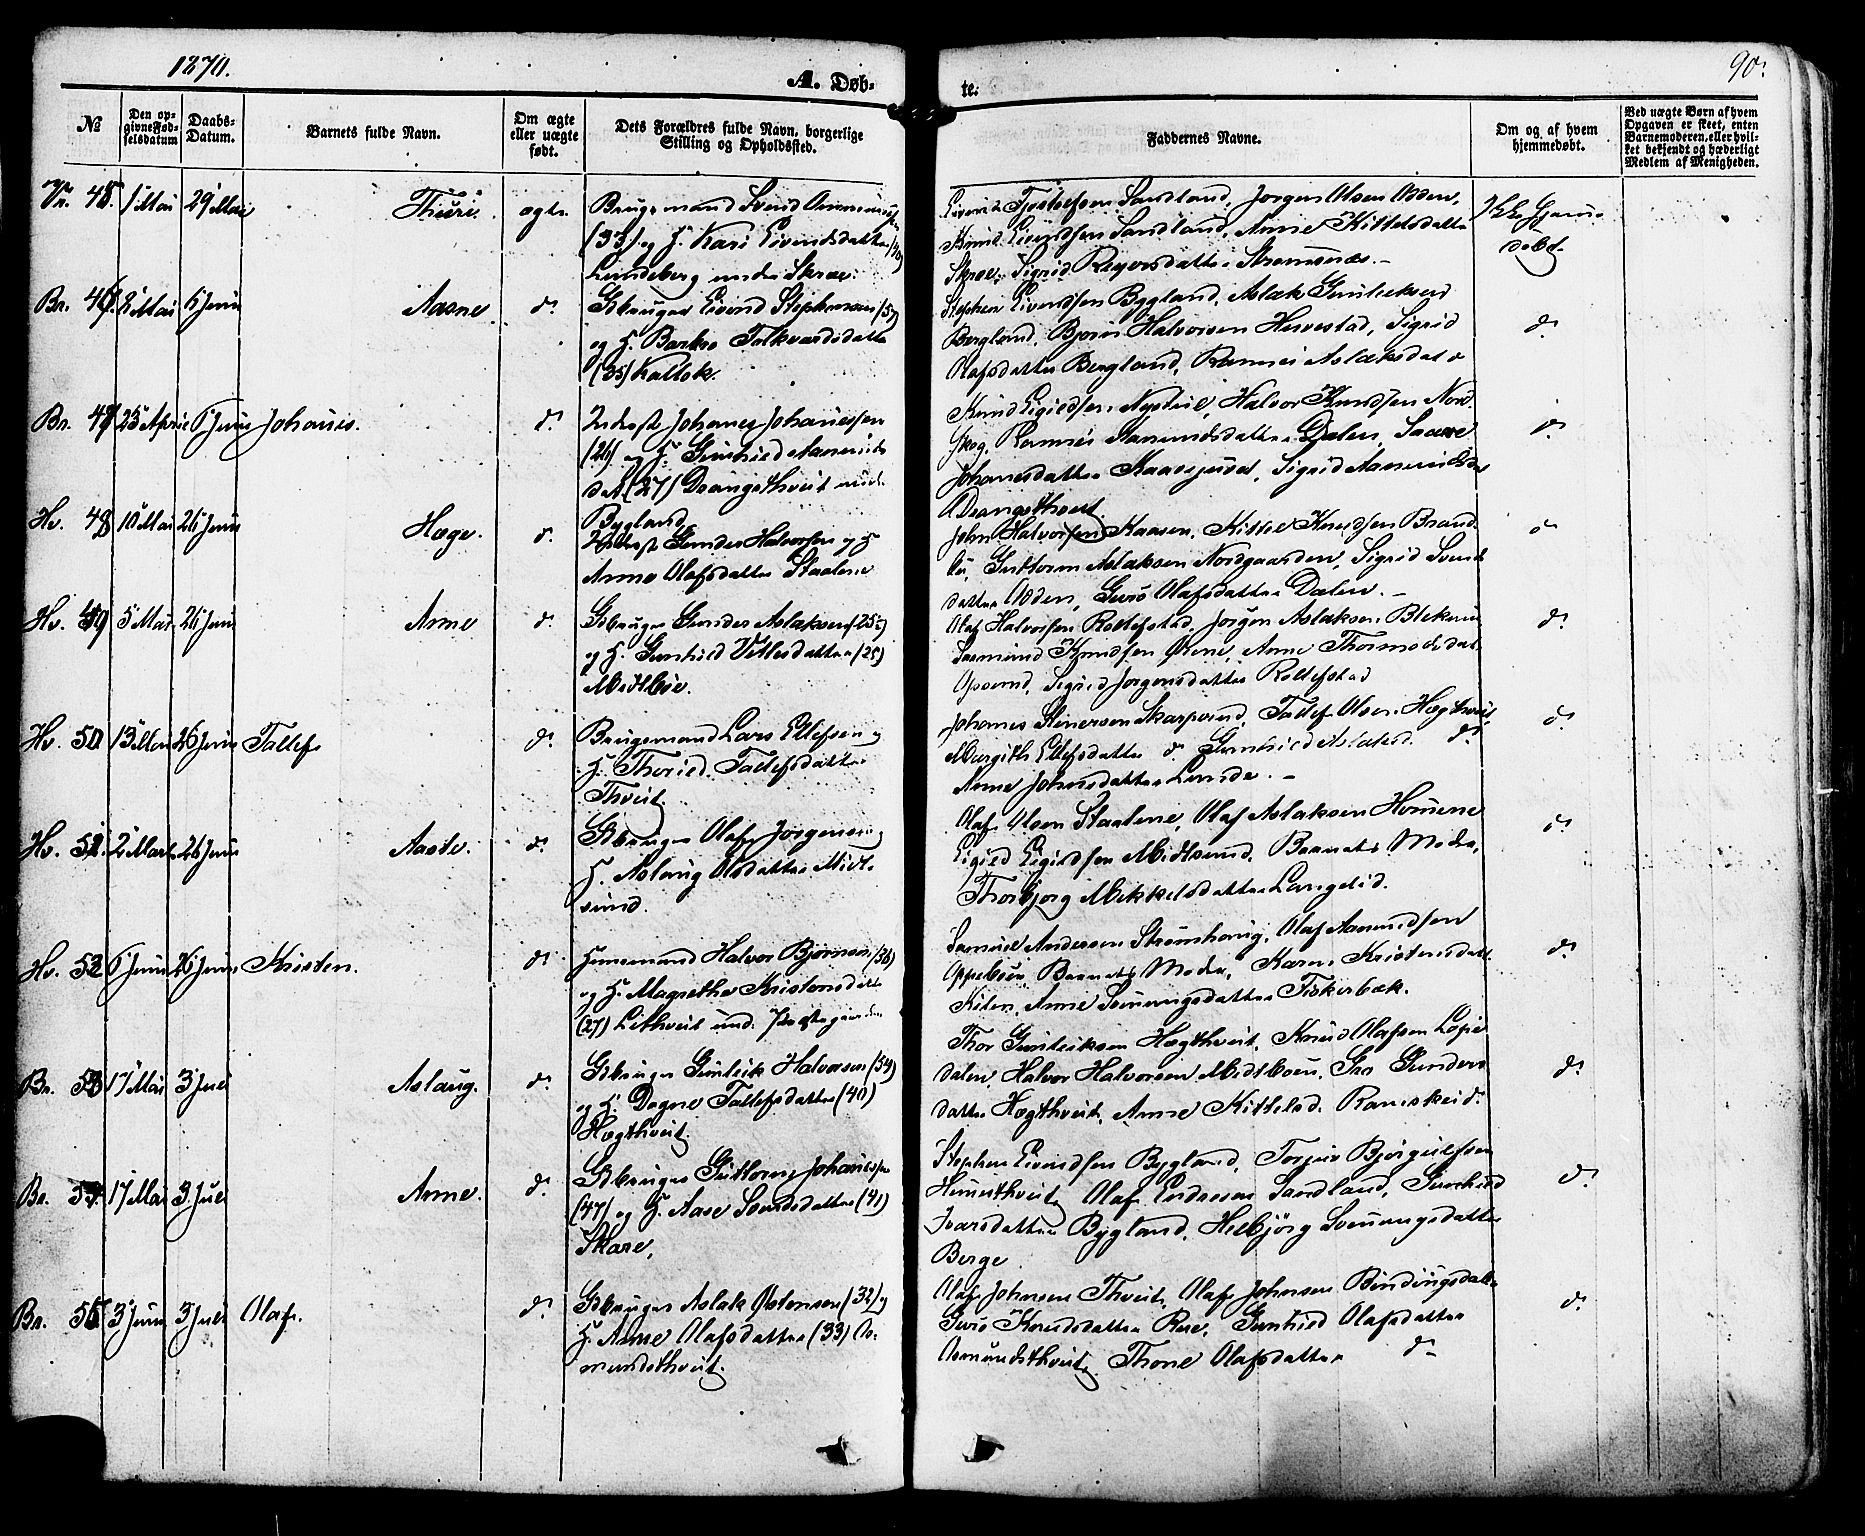 1870.
A. Døb-
te:
90.
№
Den op-
givne Fød-
selsdatum
Daabs-
Datum.
Barnets fulde Navn.
Om ægte
eller uægte
født.
Dets Forældres fulde Navn, borgerlige
Stilling og Opholdssted.
Faddernes Navne.
Om og af hvem
hjemmedøbt.
Ved uægte Børn af hvem
Opgaven er skeet, enten
Barnemoderen, eller hvil-
ket bekjendt og hæderligt
Medlem af Menigheden.
45. 1 Mai 29 Mai Thure. ægte
Brugsmand Svend
(33) og H. Kari Eivindsdatter
Lundeberg under Skree.
Tjøstelfsen Sandland, Jørgen Olsen Odden,
Knud Eivindsen Sandland, Anne Kittelsdatter
Skree, Sigrid Strømsnæs. -
Ikke Hjemme-
døbt
Br. 46. 8 Mai 6 Juni Aasne. d.
Gbruger Eivind Stephensen
og H. Barbro Folkvardsdatter
(35) Kaltok.
Stephen Eivindsen Bygland, Aslak Gunleiksen
Bergland, Bjørn Halvorsen Hervestad, Sigrid
Olafsdatter Bergland, Rannei Aslaksdatter
d.
Br. 47 25 April 6 Juni Johanes. d.
Inderst Johanes Johanessen
(26) og H. Gunhild Aanunds-
dat. (27) Drangsthveit under
Bygland
Knud Eigildsen Nystuel, Halvor Knudsen Nord-
skog, Rannei Aanundsdatter Dalen, Saave
Johanesdatter Kaasejuvet, Sigrid Aanundsd.
Drangsthveit.
d.
Hv. 48 10 Mai 26 Juni Hæge. d.
Inderst Gunder Halvorsen og H
Anne Olafsdatter Staalene
John Halvorsen Kaasen, Kittel Knudsen Brand-
li, Guttorm Aslaksen Nordgaarden, Sigrid Svends-
datter Odden, Guro Olafsdatter Dalen. -
d.
Hv. 49 5 Mai 26 Juni Anne d.
Gbruger Gunder Aslaksen (25)
og H. Gunhild Vetlesdatter (25)
Midtbøe.
Olaf Halvorsen Roltefstad, Jørgen Aslaksen
Knudsen Anne Thormodsdat.
Opsund, Sigrid Jørgensdatter Roltefstad
d.
Hv. 50 13 Mai 26 Juni Tallef d.
Brugsmand Lars Ellefsen og
H. Thorild Tallefsdatter
Thveit.
Johanes Steinersen Tallef Olsen Hægthveit,
Margith Ellefsdatter d. Gunhild d.
Anne Johnsdatter Lunde. -
d.
Hv. 51. 2 Marts 26 Juni Aaste. d.
Gbruger Olaf Jørgensen og
H. Aslaug Olsdatter Midt-
sund.
Olaf Olsen Staalene, Olaf Aslaksen
Eigild Eigildsen Midtsund, Barnets Moder,
Thorbjørg Mikkelsdatter Langelid.
d.
Hv. 52 6 Juni 26 Juni Kristen. d.
Huusmand Halvor Bjørnsen (36)
og H. Magrethe Kristensdatter
(27) Lithveit und: Præstegaarden
Samuel Andersen Strømhaug, Olaf Aanundsen
Appelsun, Barnets Moder, Karen Kristensdatt.
Kilen, Anne Sveinungsdatter Fiskerbæk.
d.
Br. 53 17 Mai 3 Juli Aslaug. d.
Gbruger Gunleik Halvorsen (54)
og H. Dagne Tallefsdatter (40)
Hægthveit.
Thor Gunleiksen Hægthveit, Knud Olafsen
dalen, Halvor Halvorsen Midtbøen, Gunders-
datter Hægthveit, Anne Kittelsd. Ramskeid.
d.
Br. 54 17 Mai 3 Juli Anne. d.
Gbruger Guttorm Johanessen
(47) og H. Aase Svendsdatter (41)
Skare.
Stephen Eivindsen Bygland, Torjus Bjørgulfsen
Olaf Endresen Sandland, Gunhild
Ivarsdatter Bygland, Helbjörg Sveinungsdatter
Berge
d.
Br. 55 3 Juni 3 Juli Olaf. d.
Gbruger Aslak Østensen (32) og
H. Anne Olafsdatter (33) As-
mundsthveit.
Olaf Johnsen Thveit, Olaf Johnsen
Guro Knudsdatter Rue, Gunhild Olafsdatter
Asmundsthveit, Thone Olafsdatter d.
d.